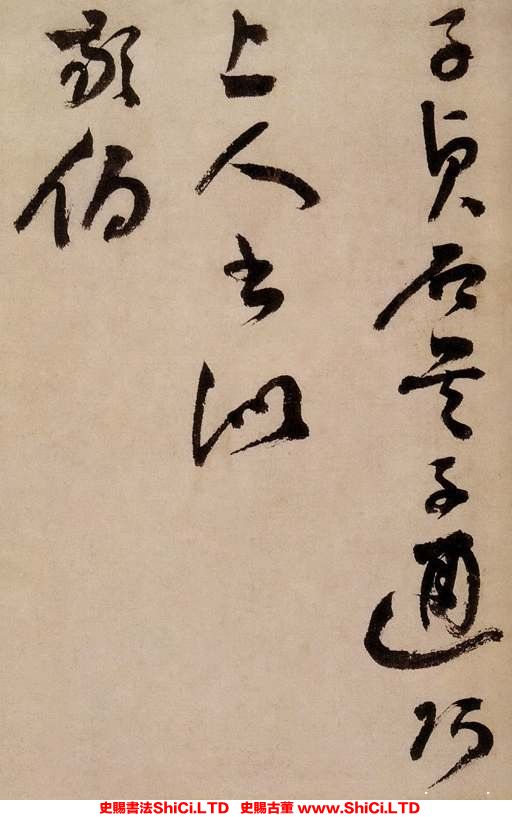 子貞石子通巧
上人書似
敬伯
史賜書法ShiCi.LTD 史賜古董 www.ShiCi.LTD